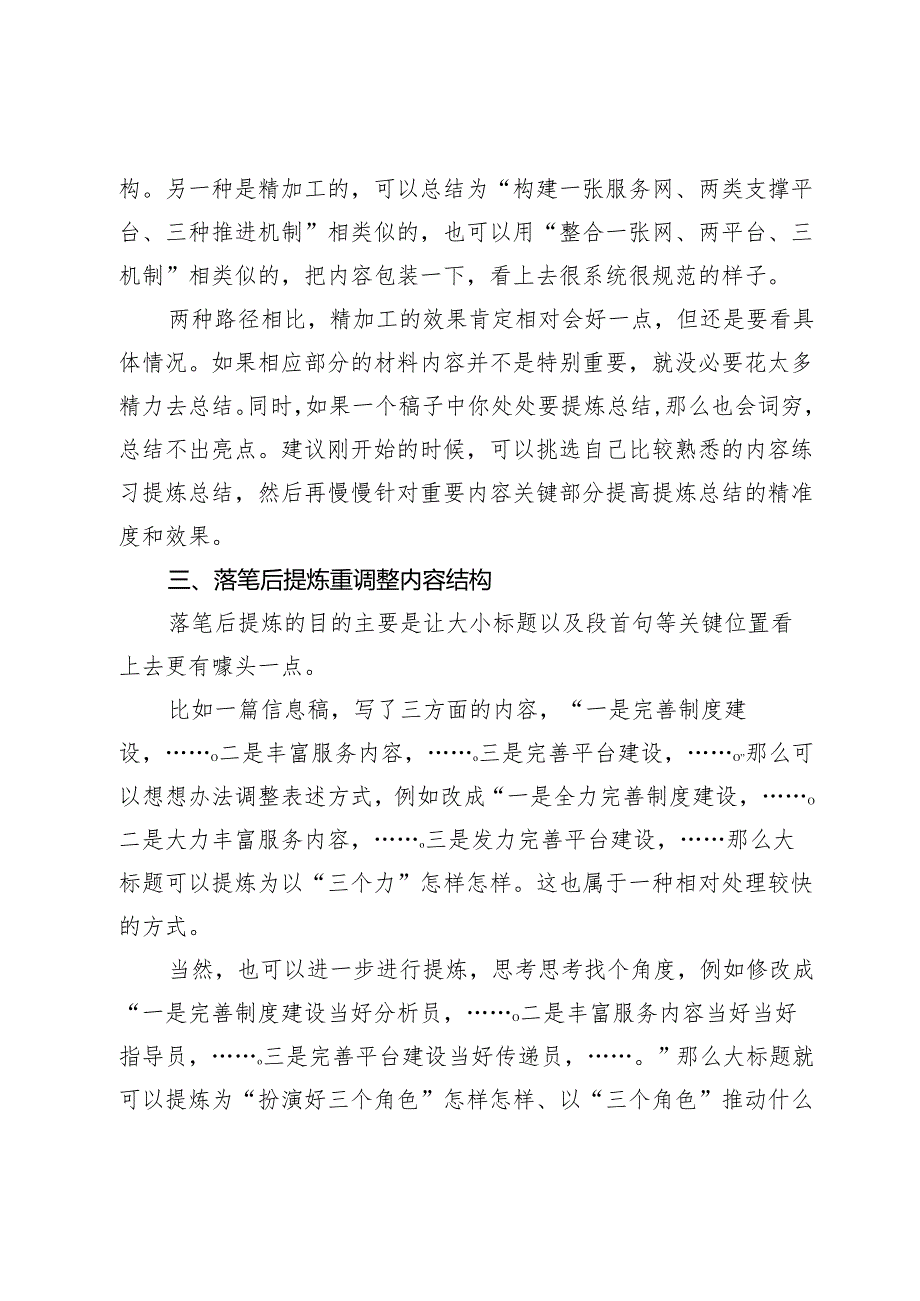 构。另一种是精加工的，可以总结为“构建一张服务网、两类支撑平
台、三种推进机制”相类似的，也可以用“整合一张网、两平台、三
机制”相类似的，把内容包装一下，看上去很系统很规范的样子。
两种路径相比，精加工的效果肯定相对会好一点，但还是要看具
体情况。如果相应部分的材料内容并不是特别重要，就没必要花太多
精力去总结。同时，如果一个稿子中你处处要提炼总结，那么也会词穷，
总结不出亮点。建议刚开始的时候，可以挑选自己比较熟悉的内容练
习提炼总结，然后再慢慢针对重要内容关键部分提高提炼总结的精准
度和效果。
三、落笔后提炼重调整内容结构
落笔后提炼的目的主要是让大小标题以及段首句等关键位置看
上去更有噱头一点。
比如一篇信息稿，写了三方面的内容，“一是完善制度建
设，……o二是丰富服务内容，……o三是完善平台建设，……o”那么可
以想想办法调整表述方式，例如改成“一是全力完善制度建设，……o
二是大力丰富服务内容，……o三是发力完善平台建设，……那么大
标题可以提炼为以“三个力”怎样怎样。这也属于一种相对处理较快
的方式。
当然，也可以进一步进行提炼，思考思考找个角度，例如修改成
“一是完善制度建设当好分析员，……o二是丰富服务内容当好当好
指导员，……o三是完善平台建设当好传递员，……。”那么大标题就
可以提炼为“扮演好三个角色”怎样怎样、以“三个角色”推动什么